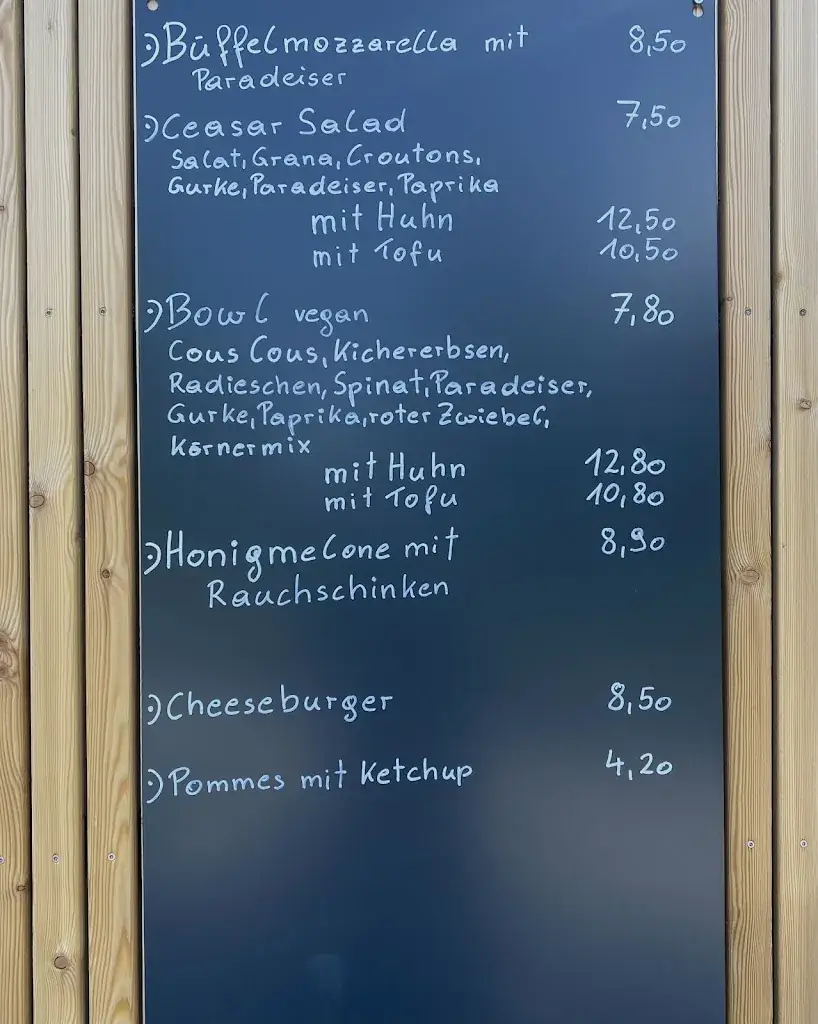 Büffelmozzarella mit 8,50
Paradeiser
Ceasar Salad 7,50
Salat, Grana, Croutons,
Gurke, Paradeiser, Paprika
mit Huhn 12,50
mit Tofu 10,50
Bowl vegan 7,80
Cous Cous, Kichererbsen,
Radieschen, Spinat, Paradeiser,
Gurke, Paprika, roter Zwiebel,
Körnermix
mit Huhn 12,80
mit Tofu 10,80
Honigmelone mit 8,90
Rauchschinken
Cheeseburger 8,50
Pommes mit Ketchup 4,20